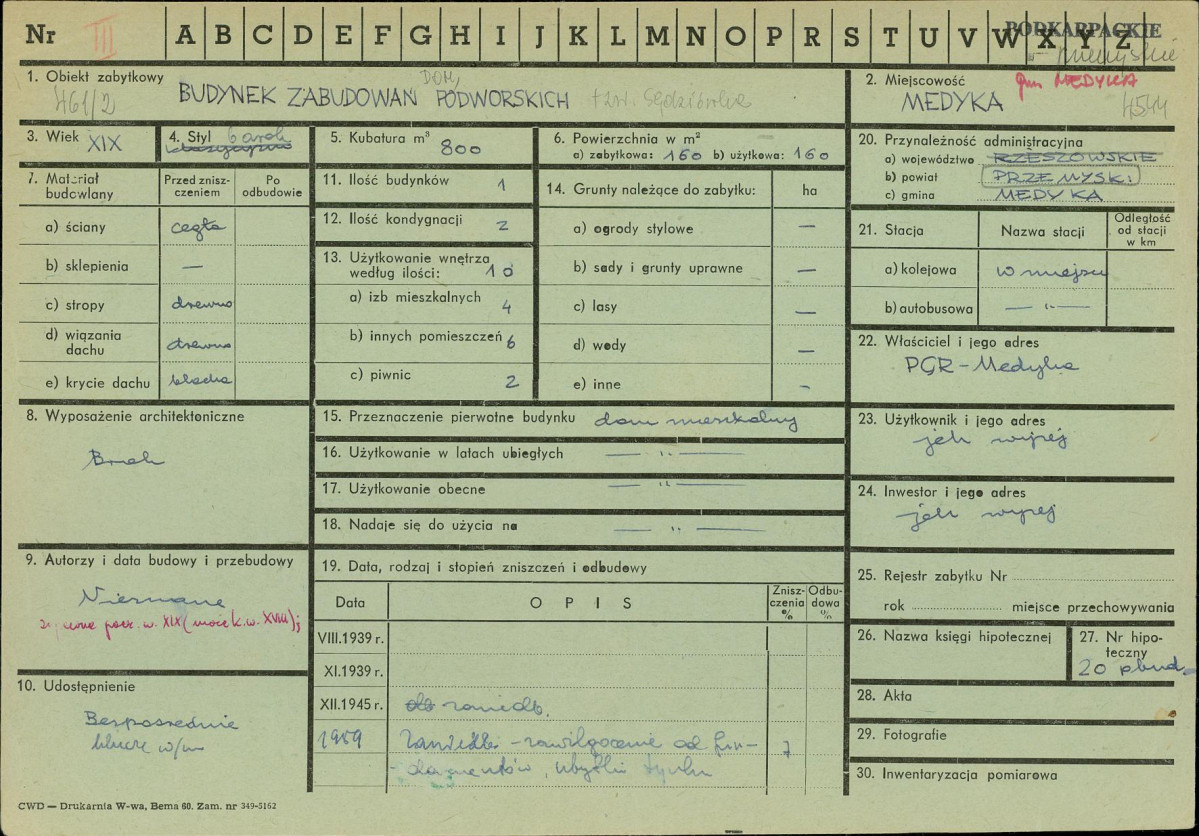 Nr III A B C D E F G H I J K L M N O P R S T U V W X Y Z PODKARPACKIE
1. Obiekt zabytkowy
461/2
DOM,
BUDYNEK ZABUDOWAŃ PODWORSKICH tzw. Sędziówka
2. Miejscowość gm MEDYKA
MEDYKA 4544
3. Wiek XIX
4. Styl barok
5. Kubatura m³ 800
6. Powierzchnia w m²
a) zabytkowa: 160 b) użytkowa: 160
7. Materiał budowlany
Przed zniszczeniem
Po odbudowie
a) ściany cegła
b) sklepienia —
c) stropy drewno
d) wiązania dachu drewno
e) krycie dachu blacha
8. Wyposażenie architektoniczne
Brak
9. Autorzy i data budowy i przebudowy
Nieznane
zapewne pocz. w. XIX (może k. w. XVIII)
10. Udostępnienie
Bezpośrednie
klucz w/m
11. Ilość budynków 1
12. Ilość kondygnacji 2
13. Użytkowanie wnętrza
według ilości: 10
a) izb mieszkalnych 4
b) innych pomieszczeń 6
c) piwnic 2
14. Grunty należące do zabytku: ha
a) ogrody stylowe —
b) sady i grunty uprawne —
c) lasy —
d) wody —
e) inne -
15. Przeznaczenie pierwotne budynku dom mieszkalny
16. Użytkowanie w latach ubiegłych — " —
17. Użytkowanie obecne — " —
18. Nadaje się do użycia na — " —
19. Data, rodzaj i stopień zniszczeń i odbudowy
Data
OPIS
Zniszczenia %
Odbudowa %
VIII.1939 r.
XI.1939 r.
XII.1945 r. zaniedb.
1959 Zaniedb. - zawilgocenie od fun-
damentów, ubytki tynku
7
20. Przynależność administracyjna
a) województwo RZESZOWSKIE
b) powiat PRZEMYSKI
c) gmina MEDYKA
21. Stacja
Nazwa stacji
Odległość od stacji w km
a) kolejowa w miejscu
b) autobusowa — " —
22. Właściciel i jego adres
PGR - Medyka
23. Użytkownik i jego adres
jak wyżej
24. Inwestor i jego adres
jak wyżej
25. Rejestr zabytku Nr
rok miejsce przechowywania
26. Nazwa księgi hipotecznej
27. Nr hipoteczny
20 pbud.
28. Akta
29. Fotografie
30. Inwentaryzacja pomiarowa
CWD — Drukarnia W-wa, Bema 60. Zam. nr 349-5162